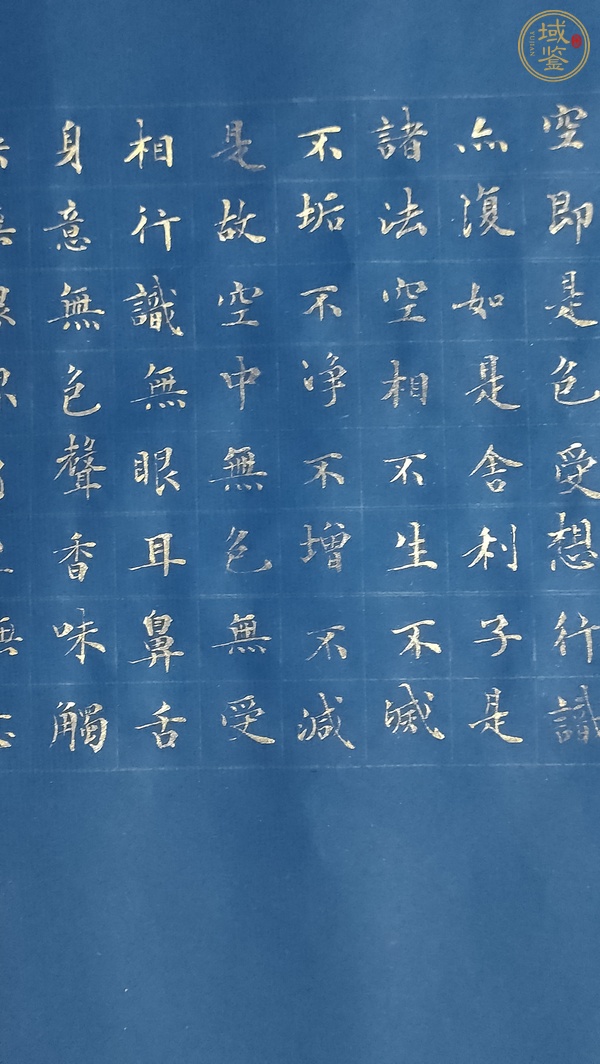 空即是色受想行識
亦復如是舍利子是
諸法空相不生不滅
不垢不净不增不減
是故空中無色無受
相行識無眼耳鼻舌
身意無色聲香味觸
域鉴
YUJIAN